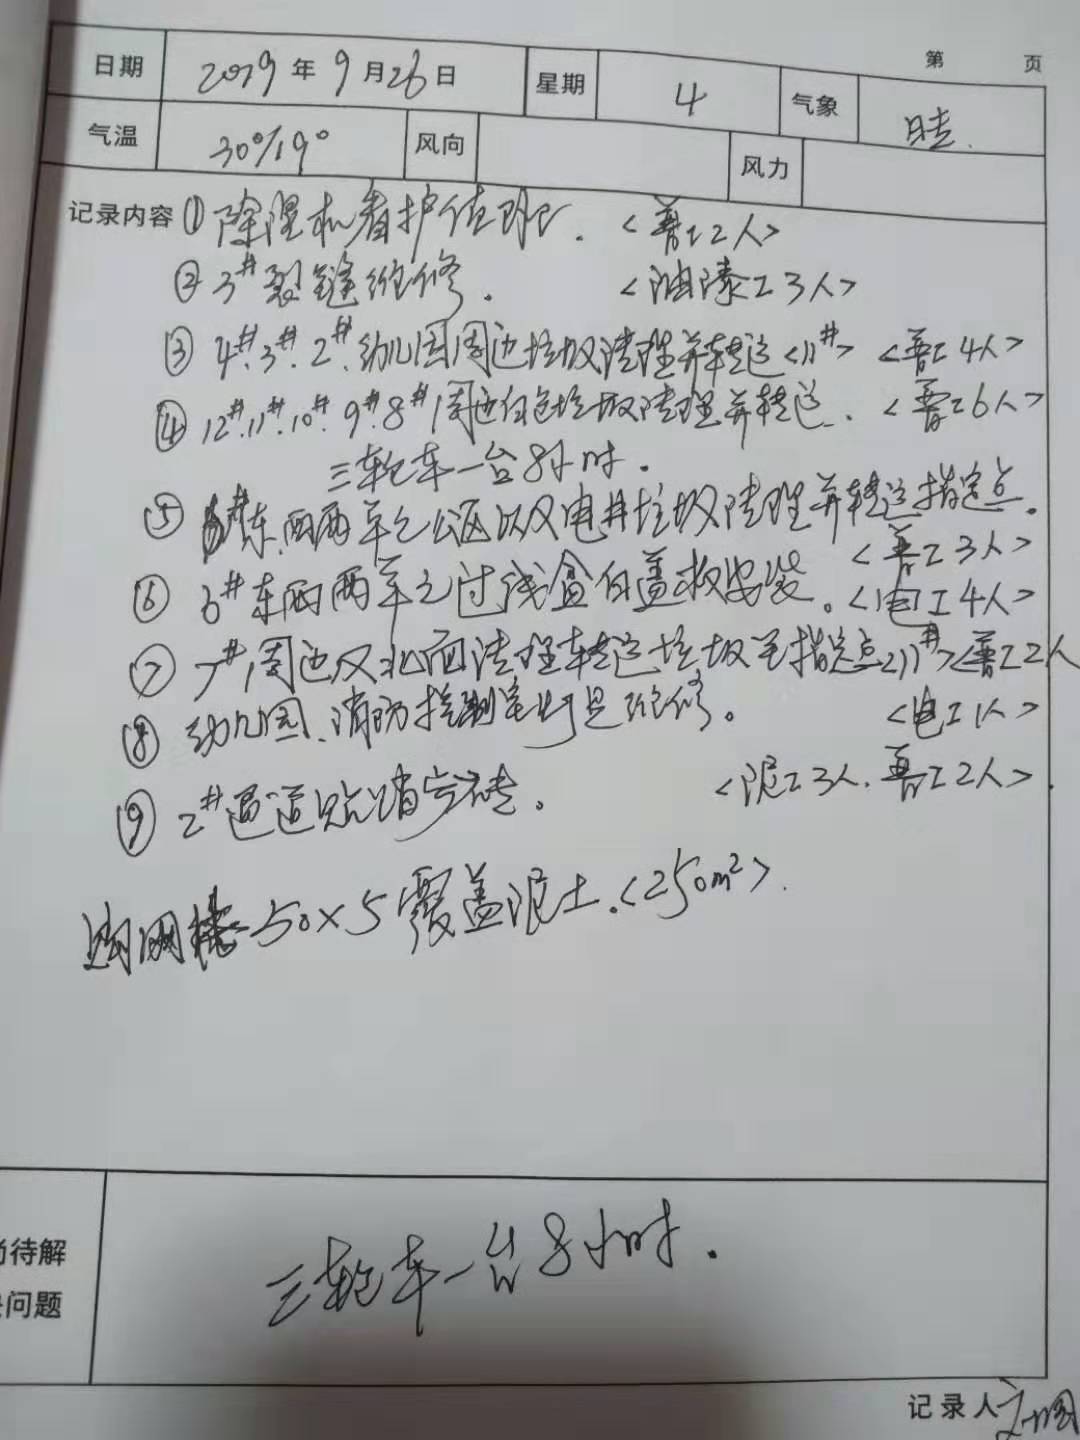 第 页
日期 2019年9月26日 星期 4 气象 晴.
气温 30°/19° 风向 风力
记录内容 ①除湿机看护值班. <普工2人>
②3#裂缝维修. <油漆工3人>
③4#.3#.2#.幼儿园周边垃圾清理并转运<11#> <普工4人>
④12#.11#.10#.9#.8#周边白色垃圾清理并转运. <普工6人>
三轮车一台8小时.
⑤6#东.西两单元公区以及电井垃圾清理并转运指定点.
<普工3人>
⑥6#东西两单元过线盒白盖板安装。<电工4人>
⑦7#周边及北面清理转运垃圾至指定点<11#><普工2人
⑧幼儿园、消防控制室灯具维修。 <电工1人>
⑨2#通道贴踏步砖。 <泥工3人.普工2人>.
网 50×5覆盖泥土.<250m²>.
尚待解
决问题
三轮车一台8小时.
记录人